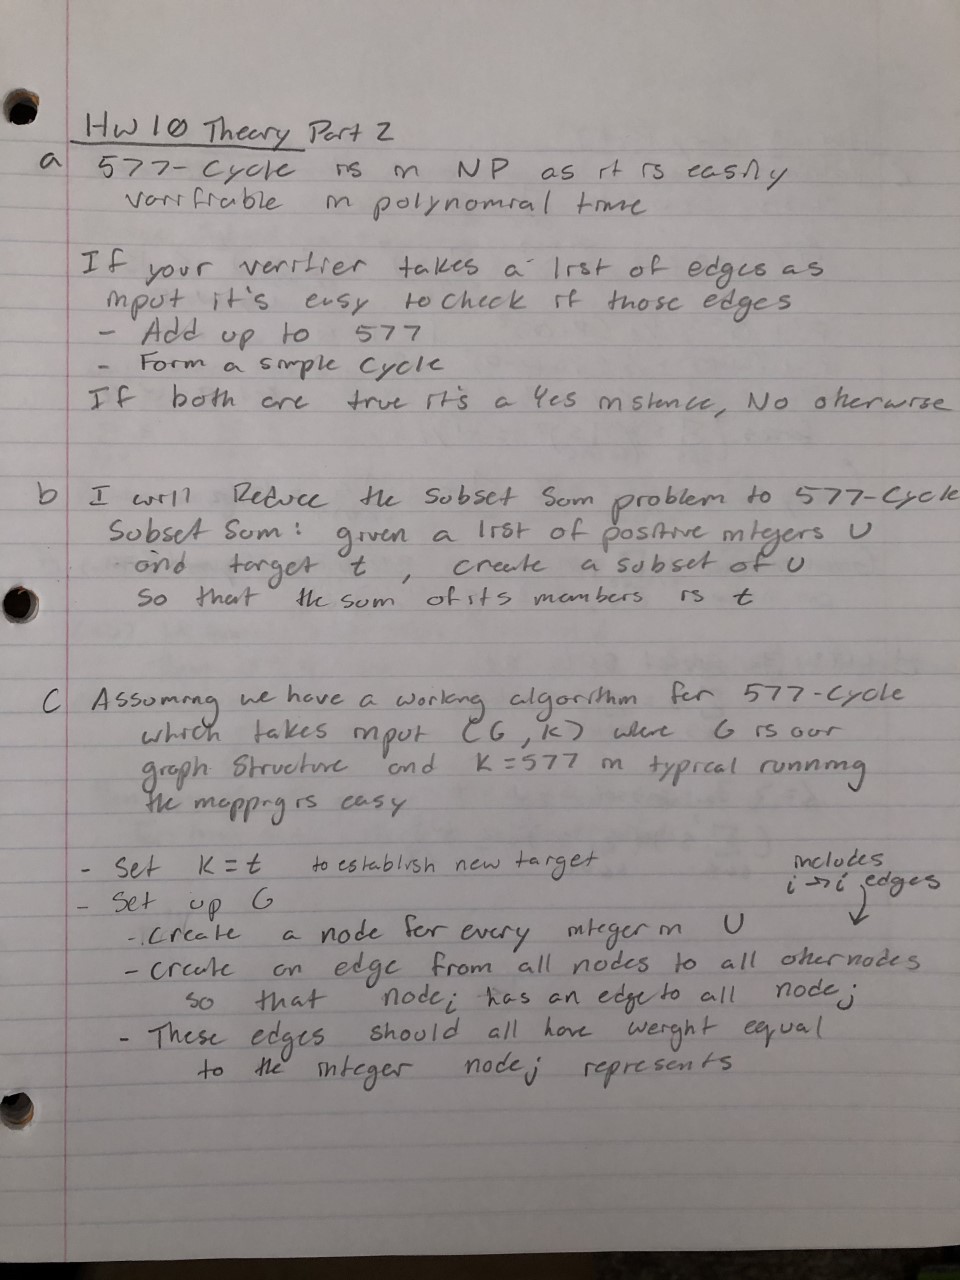 HW 10 Theory Part 2
a 577-Cycle is in NP as it is easily
varifiable in polynomial time
If your verifier takes a list of edges as
input it's easy to check if those edges
- Add up to 577
- Form a simple cycle
If both are true it's a Yes instance, No oherwise
b I will Reduce the Subset Sum problem to 577-Cycle
Subset Sum: given a list of positive integers U
and target t, create a subset of U
so that the sum of its members is t
C Assuming we have a working algorithm for 577-Cycle
which takes input (G, K) where G is our
graph Structure and K = 577 in typical running
the mapping is easy
- Set K = t to establish new target
includes
i → i edges
- Set up G
- Create a node for every integer in U
- create an edge from all nodes to all other nodes
so that node i has an edge to all node j
- These edges should all have weight equal
to the integer node j represents